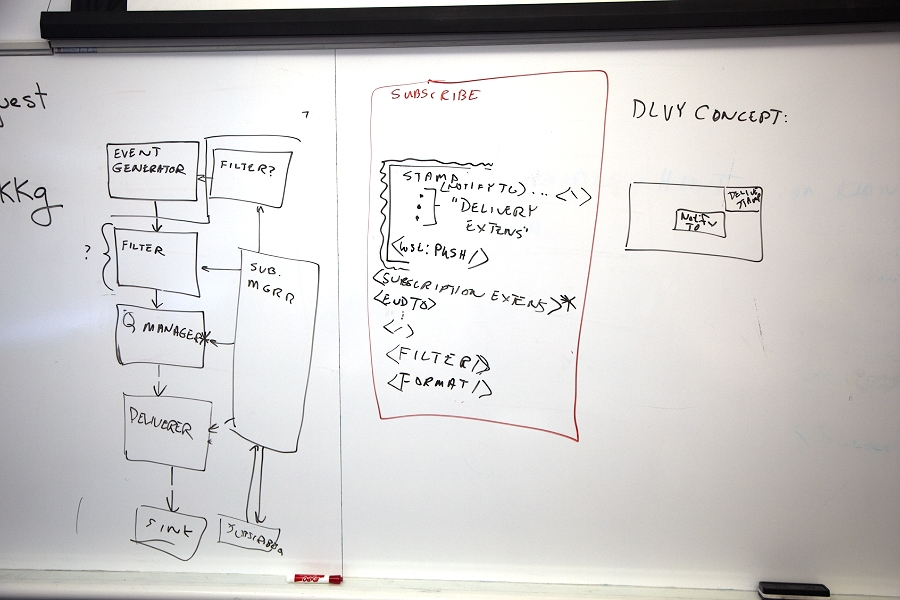 KKg
EVENT
GENERATOR
FILTER?
?
FILTER
SUB.
MGRR
Q MANAGER
DELIVERER
SINK
SUBSCRIBE
STAMP
(NOTIFY TO) ... <->
"DELIVERY
EXTENS"
<WSL:PUSH/>
<SUBSCRIPTION EXTENS>*
<ENDTO>
<->
<FILTER/>
<FORMAT/>
DLVY CONCEPT:
NOTIFY
TO